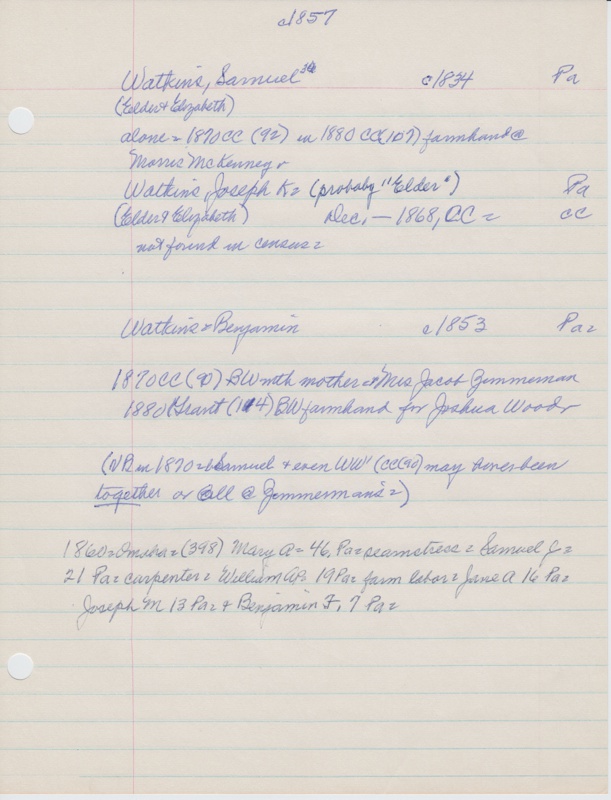 c1857
Watkins, Samuel c1834 Pa
(Elder & Elizabeth)
alone = 1870 CC (92) in 1880 CC (107) farmhand @
Morris McKenney
Watkins, Joseph K = (probaby "Elder") Pa
(Elder & Elizabeth) Dec. — 1868, CC = CC
not found in census =
Watkins = Benjamin c1853 Pa =
1870 CC (90) BW with mother = Mrs Jacob Zimmerman
1880 Grant (114) BW farmhand for Joshua Woods
(NB in 1870 = Samuel & even WW (CC(90) may have been
together or all @ Zimmermans =)
1860 = Omaha = (398) Mary A = 46, Pa = seamstress = Samuel J =
21 Pa = carpenter = William AP. 19 Pa = farm labor = Jane A 16 Pa =
Joseph M 13 Pa = & Benjamin F, 7 Pa =